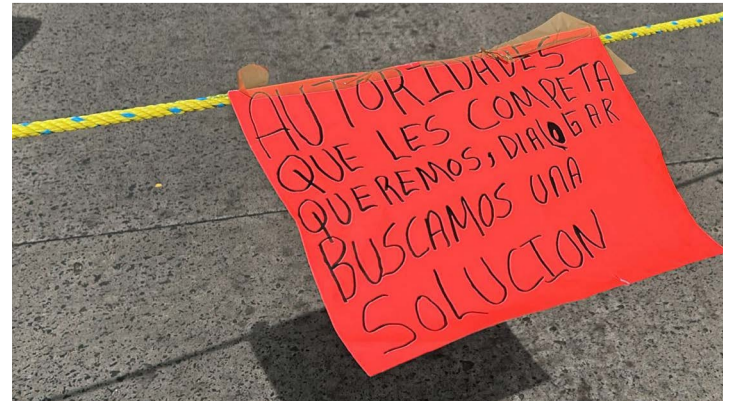 AUTORIDADES
QUE LES COMPETA
QUEREMOS, DIALOGAR
BUSCAMOS UNA
SOLUCION